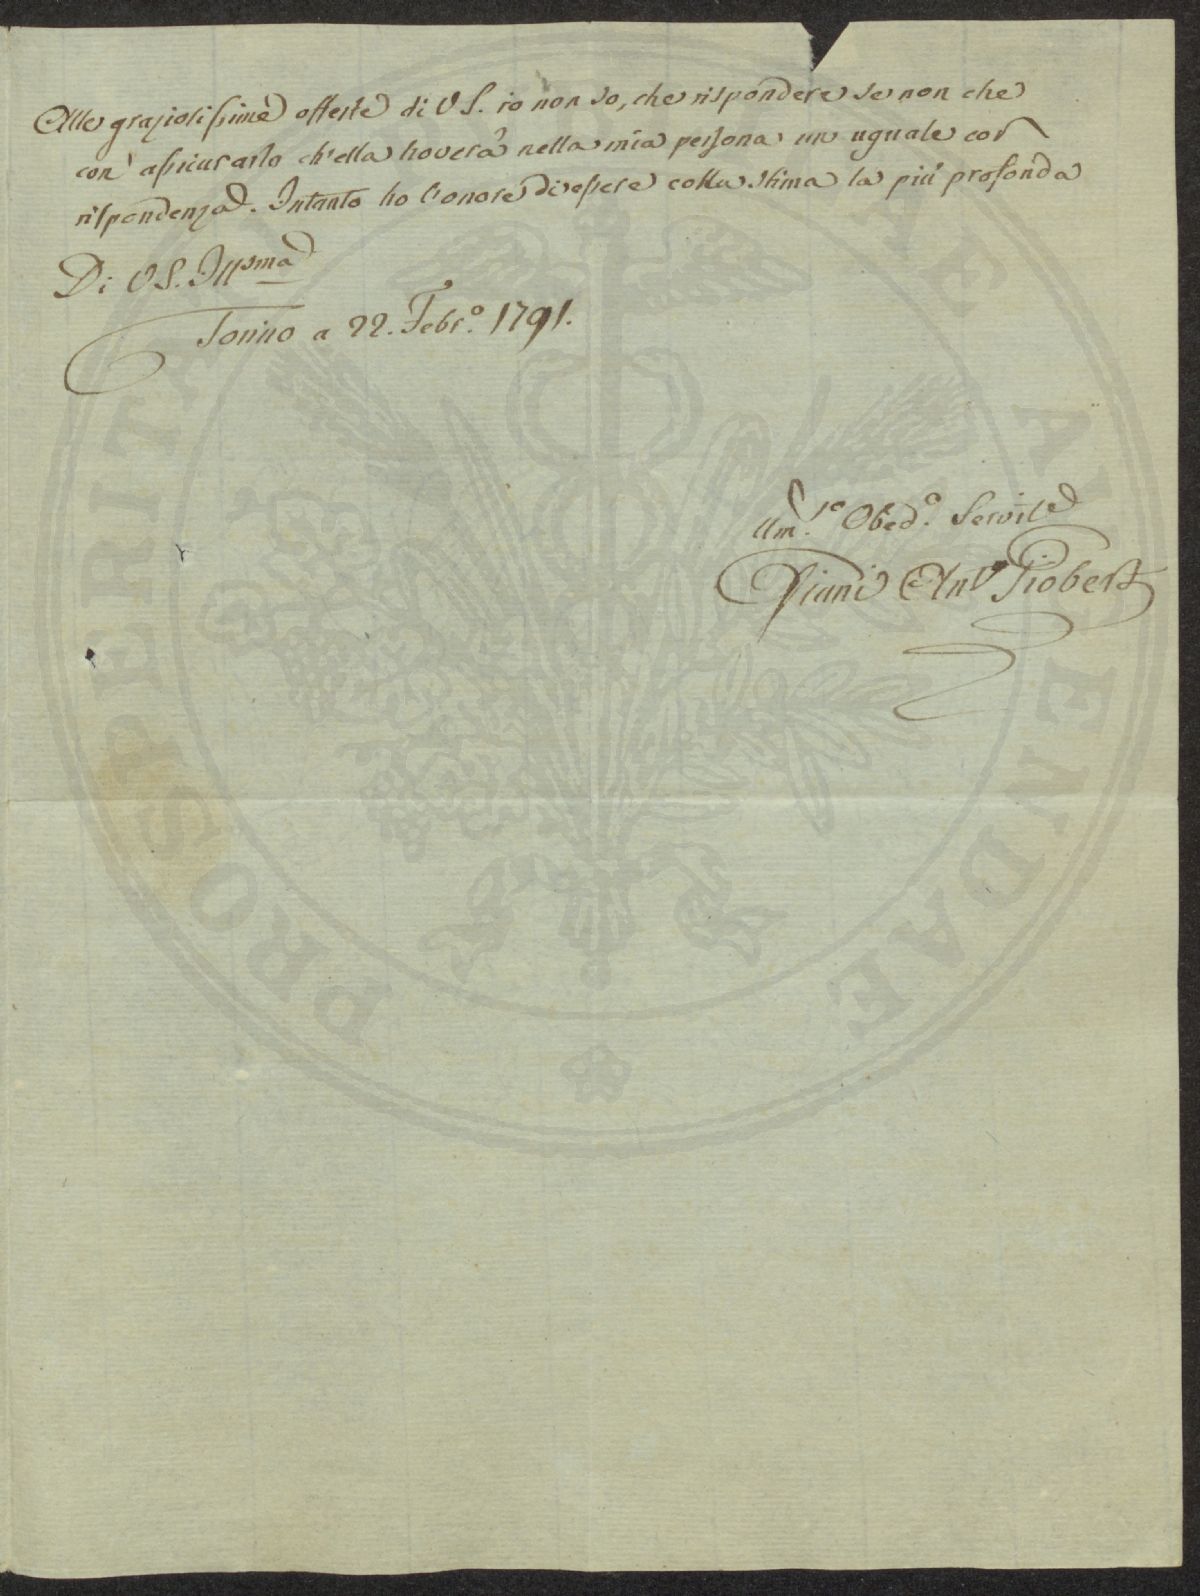 Alle graziosissime offerte di V S. io non so, che rispondere se non che
con assicurarlo ch'ella troverà nella mia persona un uguale cor
rispondenza. Intanto ho l'onore di essere colla stima la più profonda
Di V S. Ill.ma
Torino a 22. Febr.o 1791.
Um.e Obed.o Servit.e
Viani Ant.o Giobert
PROSPERITATIS AUGENDAE